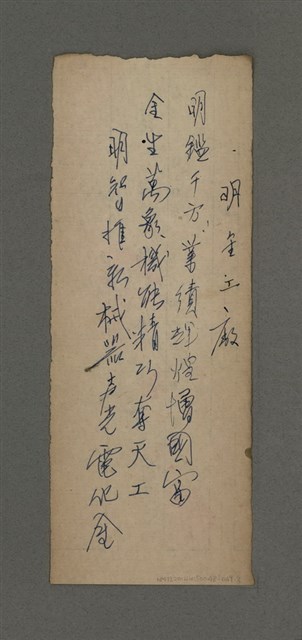 明金工廠
明鑑千方業績輝煌增國富
金坐萬象機能精巧奪天工
明智推新械器声光電化全